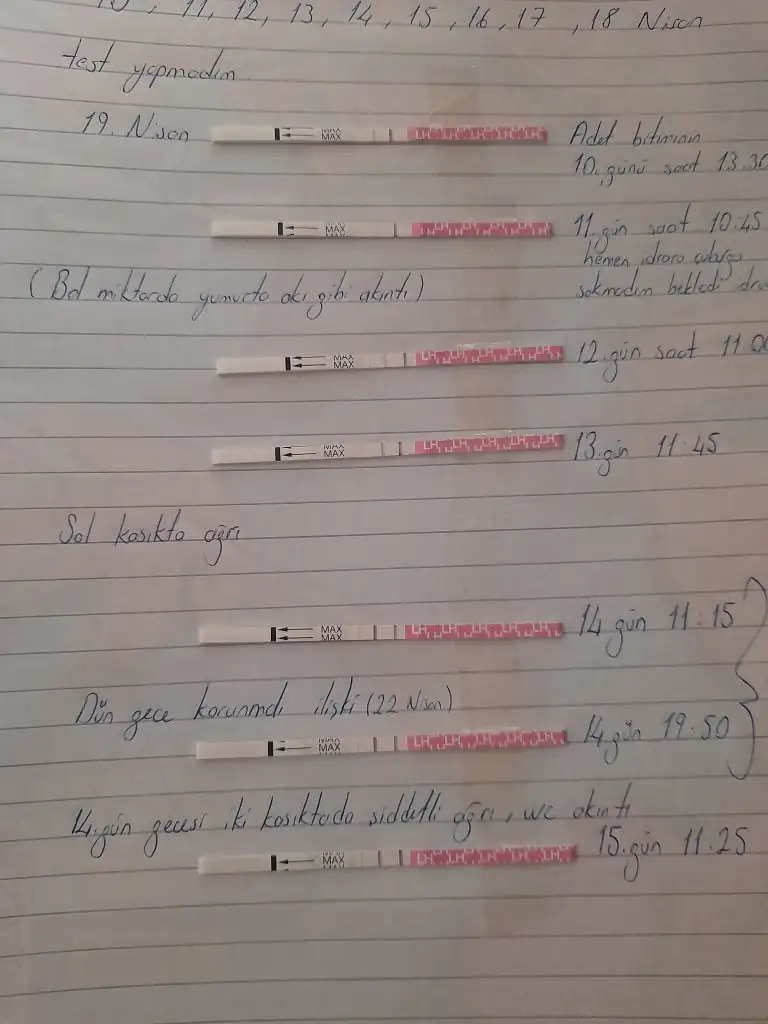 10, 11, 12, 13, 14, 15, 16, 17, 18 Nisan
test yapmadım
19. Nisan MAX MAX LH LH LH LH LH Adet bitiminin
10. günü saat 13.30
MAX LH LH LH LH LH 11. gün saat 10:45
hemen idrara çubuğu
(Bol miktarda yumurta akı gibi akıntı) sokmadım bekledi
MAX MAX LH LH LH LH LH 12. gün saat 11.00
MAX MAX LH LH LH LH LH 13. gün 11:45
Sol kasıkta ağrı
MAX MAX LH LH LH LH LH 14. gün 11:15
Dün gece korunmalı ilişki (22 Nisan)
MAX MAX LH LH LH LH LH 14. gün 19:50
14. gün gecesi iki kasıktada şiddetli ağrı, ve akıntı
MAX LH LH LH LH LH 15. gün 11.25